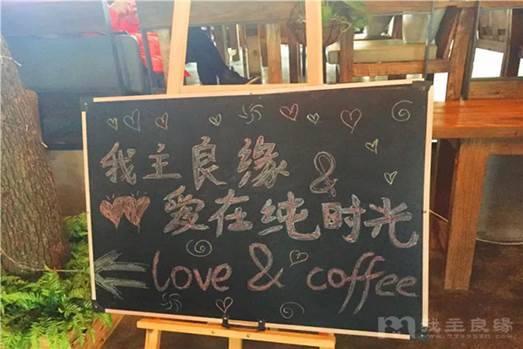 我主良缘 &
爱在纯时光
love & coffee
我主良缘